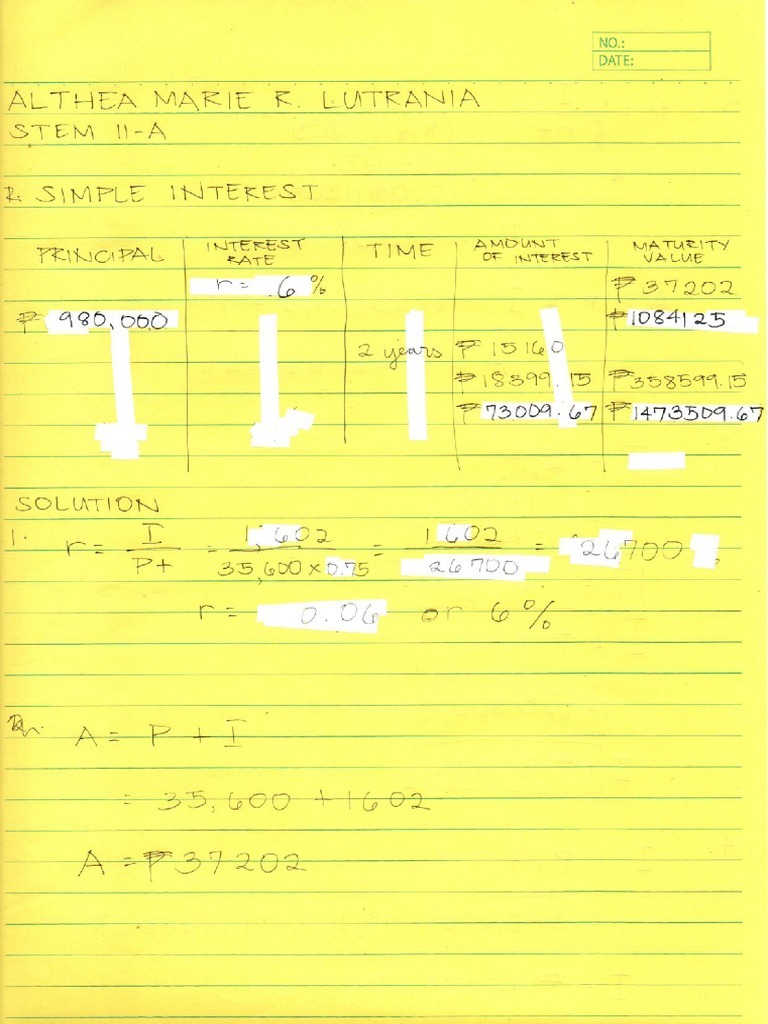 NO.:
DATE:
ALTHEA MARIE R. LUTRANIA
STEM 11-A
SIMPLE INTEREST
PRINCIPAL INTEREST RATE TIME AMOUNT OF INTEREST MATURITY VALUE
r = .6 % ₱ 37202
₱ 980,000 ₱ 1084125
2 years ₱ 15160
₱ 18399.15 ₱ 358599.15
₱ 73009.67 ₱ 1473509.67
SOLUTION
1. r = I / Pt = 1,602 / 35,600 x 0.75 = 1602 / 26700 = 26700
r = 0.06 or 6 %
A = P + I
= 35,600 + 1602
A = ₱ 37202